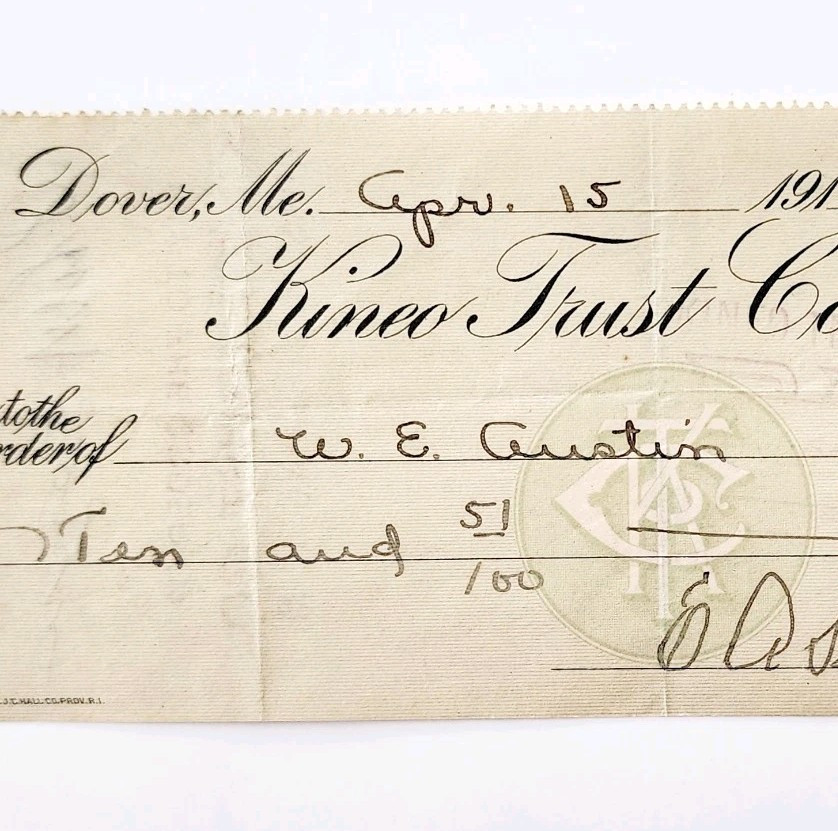 Dover, Me. Apr. 15 191
Kineo Trust Co
to the
rder of W. E. Austin
Ten and 51/100
J.C. HALL CO. PROV. R.I.